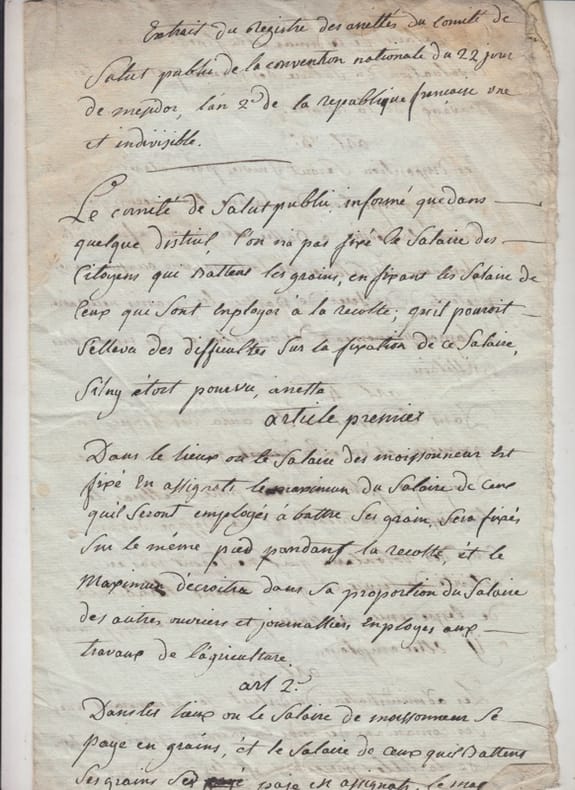 Extrait du registre des arrettés du comité de
Salut public de la convention nationale du 22 jour
de mesidor, lan 2.e de la republique francaise une
et indivisible.
Le comité de Salut public informé que dans
quelque distrui, l'on na pas fixé le Salaire des
Citoyens qui battens les grains, en fixant les Salaire de
Ceux qui Sont Employer à la recolte; quil pouroit
S'elleva des difficultes Sur la fixation de ce Salaire,
Silny étoit pourvu, arrette
article premier
Dans le lieux ou le Salaire des moissonneur Est
fixé En assignats le maximum du Salaire de Ceux
quil Seront employés à battre Ses grain, Sera fixés
Sur le même pied pandant la recolte, et le
Maximum décroitra dans Sa proportion du Salaire
des autres ouvriers et journalliers Employes aux
travaux de l'agriculture.
art 2.e
Dans les lieux ou le Salaire de moissonneur Se
paye en grains, et le Salaire de ceux quil battens
Ses grains Ses paye en assignats, le max